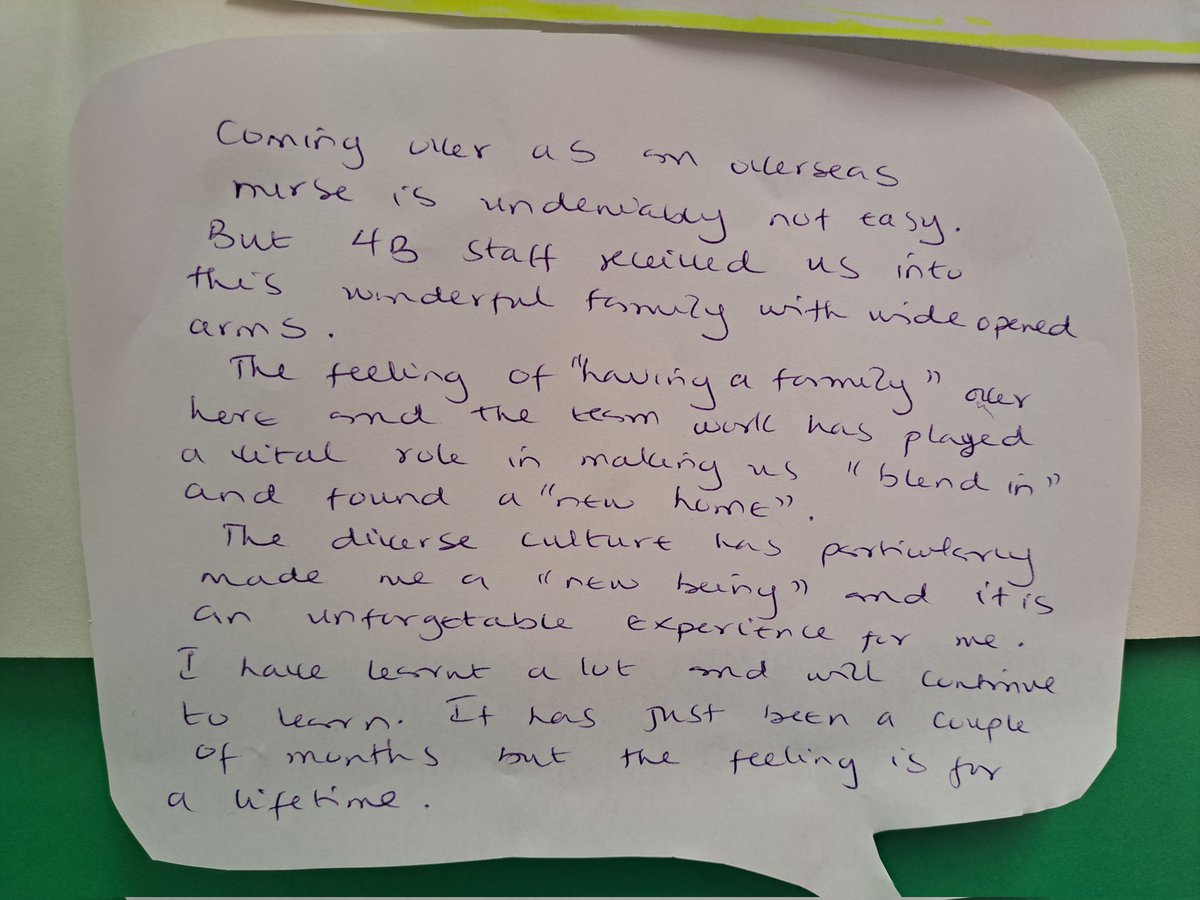 Coming over as an overseas
nurse is undeniably not easy.
But 4B staff received us into
this wonderful family with wide opened
arms.
The feeling of "having a family" over
here and the team work has played
a vital role in making us "blend in"
and found a "new home".
The diverse culture has particularly
made me a "new being" and it is
an unforgetable experience for me.
I have learnt a lot and will continue
to learn. It has just been a couple
of months but the feeling is for
a lifetime.